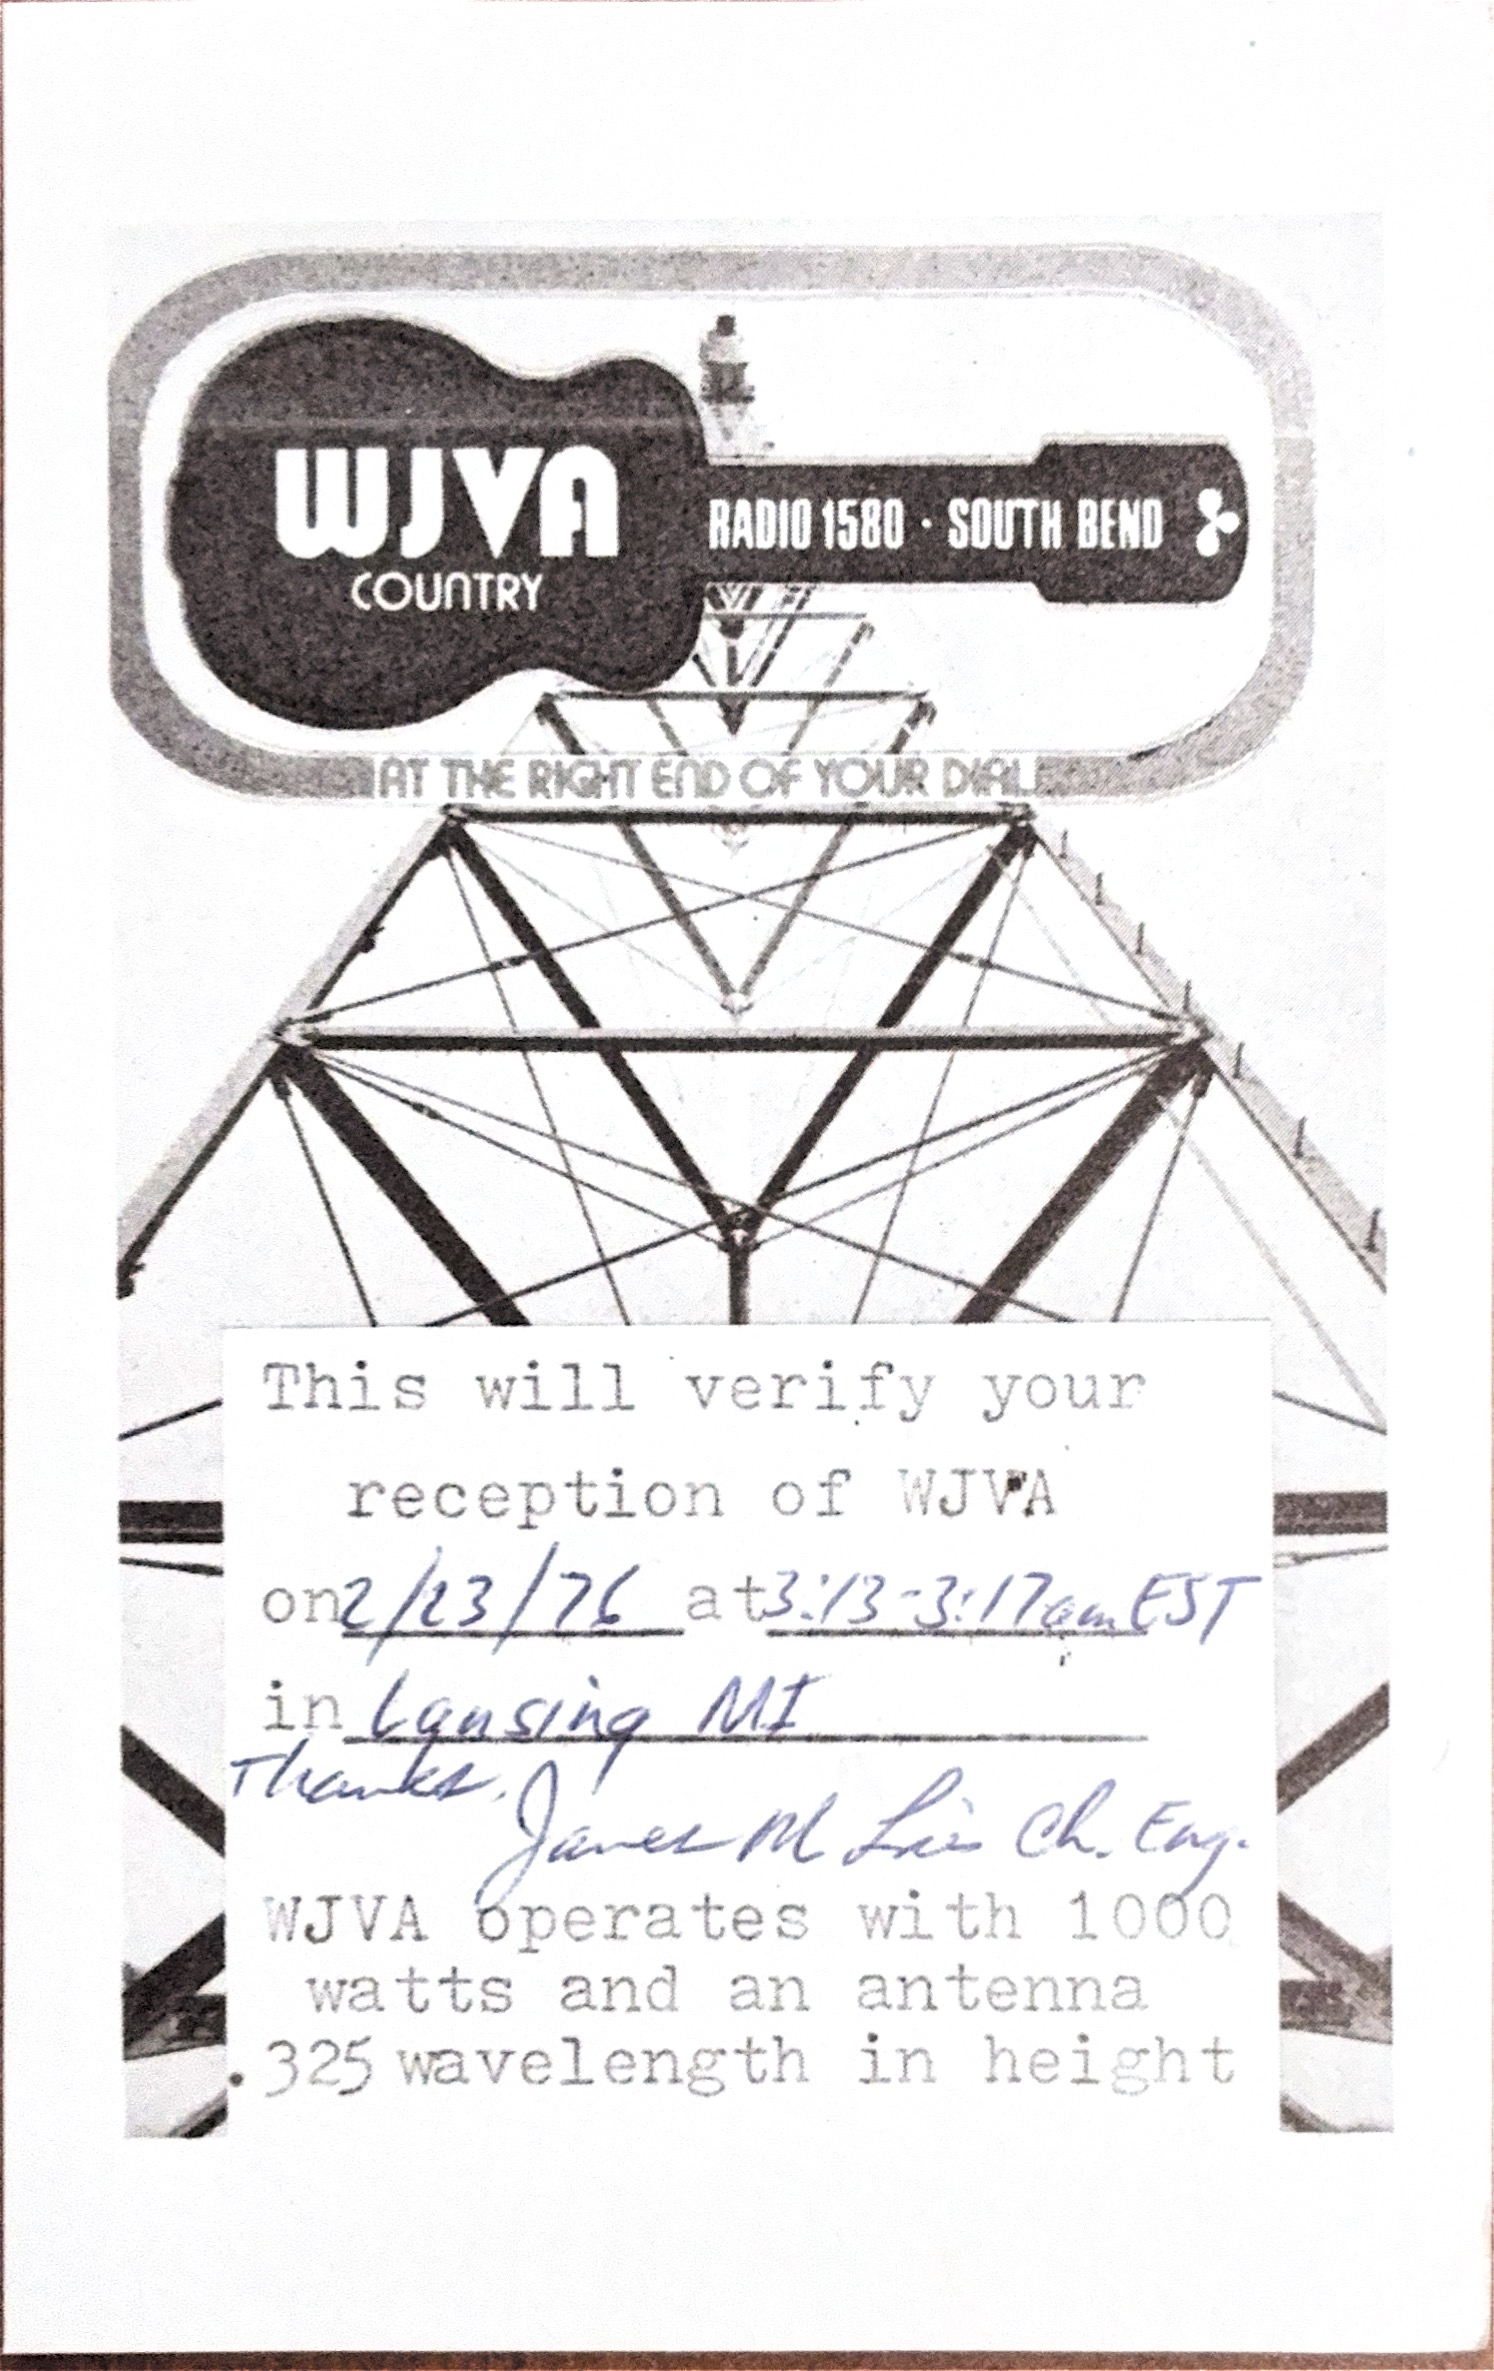 WJVA
COUNTRY
RADIO 1580 · SOUTH BEND
AT THE RIGHT END OF YOUR DIAL
This will verify your
reception of WJVA
on 2/23/76 at 3:13-3:17am EST
in Lansing MI
Thanks.
James M Ch. Eng.
WJVA operates with 1000
watts and an antenna
.325 wavelength in height